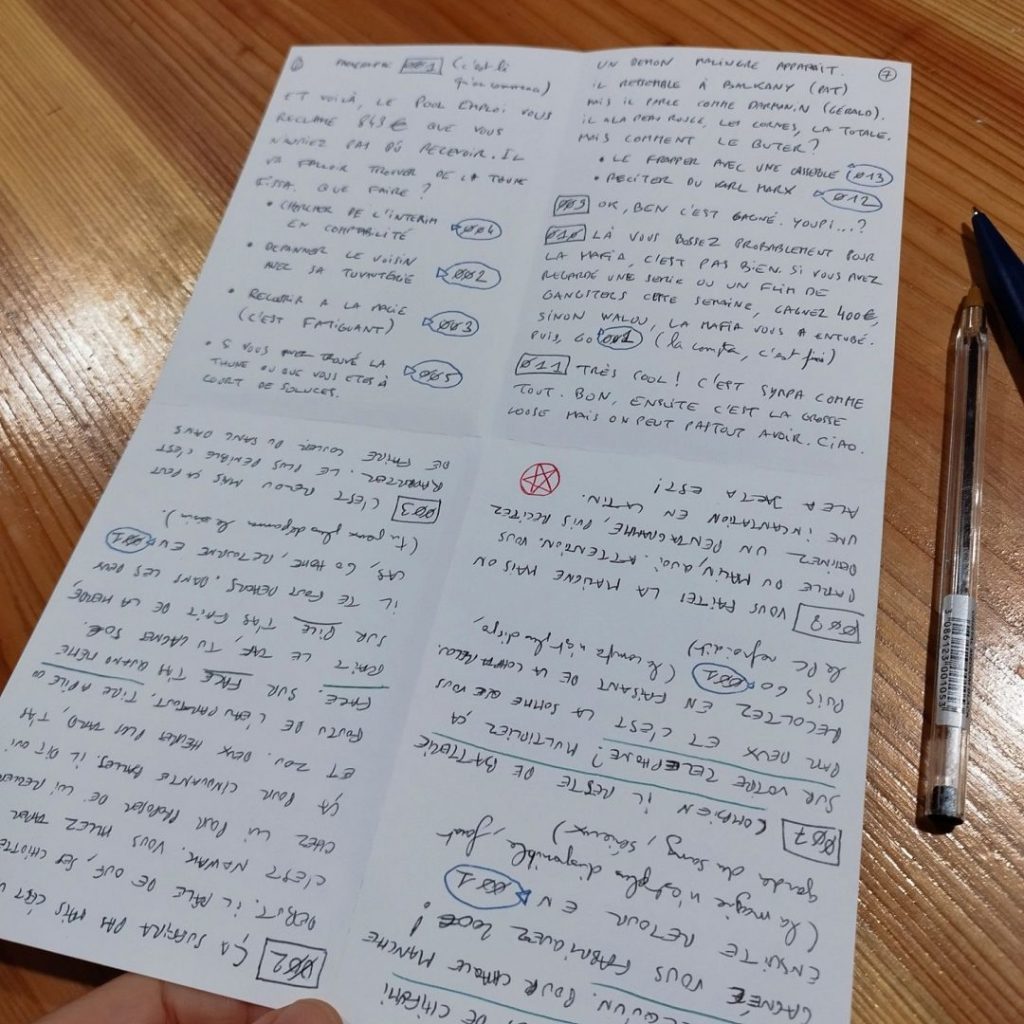 PARAGRAPHE 001 (c'est là
qu'on commence)
ET VOILÀ, LE POOL EMPLOI VOUS
RECLAME 843€ QUE VOUS
N'AURIEZ PAS DÛ RECEVOIR. IL
VA FALLOIR TROUVER DE LA THUNE
FISSA. QUE FAIRE ?
• CHERCHER DE L'INTERIM
EN COMPTABILITÉ 004
• DEPANNER LE VOISIN
AVEC SA TUYAUTERIE 002
• RECOURIR A LA MAGIE
(C'EST FATIGUANT) 003
• SI VOUS AVEZ TROUVÉ LA
THUNE OU QUE VOUS ETES À
COURT DE SOLUCES. 005
7
UN DEMON MALINGRE APPARAIT.
IL RESSEMBLE À BALKANY (PAT)
MAIS IL PARLE COMME DARMANIN (GÉRALD).
IL A LA PEAU ROUGE, LES CORNES, LA TOTALE.
MAIS COMMENT LE BUTER ?
• LE FRAPPER AVEC UNE CASSEROLE 013
• RECITER DU KARL MARX 012
009 OK, BEN C'EST GAGNÉ. YOUPI...?
010 LÀ VOUS BOSSEZ PROBABLEMENT POUR
LA MAFIA, C'EST PAS BIEN. SI VOUS AVEZ
REGARDÉ UNE SERIE OU UN FLIM DE
GANGSTERS CETTE SEMAINE, GAGNEZ 400€,
SINON WALOU, LA MAFIA VOUS A ENTUBÉ.
PUIS, GO 001 (la compta, c'est fini)
011 TRÈS COOL ! C'EST SYMPA COMME
TOUT. BON, ENSUITE C'EST LA GROSSE
LOOSE MAIS ON PEUT PAS TOUT AVOIR. CIAO.
002 ÇA SUFFIRA PAS MAIS C'EST U
DEBUT. IL PÂLE DE OUF, SES CHIOTTE
C'EST NAWAK. VOUS ALLEZ TAPER
CHEZ LUI POUR PROPOSER DE LUI REGLER
ÇA POUR CINQUANTE BALLES. IL DIT OUI
ET ZOU. DEUX HEURES PLUS TARD, T'AS
FOUTU DE L'EAU PARTOUT. TIRE A PILE OU
FACE. SUR FACE T'AS QUAND MÊME
FAIT LE TAF, TU GAGNES 50€.
SUR PILE T'AS FAIT DE LA MERDE,
IL TE FOUT DEHORS. DANS LES DEUX
CAS, GO HOME, RETOURNE EN 001
(tu peux plus dépanner le voisin.)
003 C'EST RELOU MAIS ÇA PEUT
RAPPORTER. LE PLUS PENIBLE C'EST
DE FAIRE COULER DU SANG DANS
DE CHIFOMI
QUELQU'UN. POUR CHAQUE MANCHE
GAGNÉE VOUS FABRIQUEZ 200€ !
ENSUITE RETOUR EN 001
(la magie n'est plus disponible, faut
garder du sang, sérieux)
007 COMBIEN IL RESTE DE BATTERIE
SUR VOTRE TELEPHONE ? MULTIPLIEZ ÇA
PAR DEUX ET C'EST LA SOMME QUE VOUS
RECOLTEZ EN FAISANT DE LA COMPTA
PUIS GO 001 (la compta n'est plus dispo,
le PC refroidit)
VOUS FAITES LA MALIGNE MAIS ON
PARLE DU MALIN, QUOI. ATTENTION. VOUS
DESSINEZ UN PENTAGRAMME, PUIS RECITEZ
UNE INCANTATION EN LATIN.
ALEA JACTA EST !
3086123001053